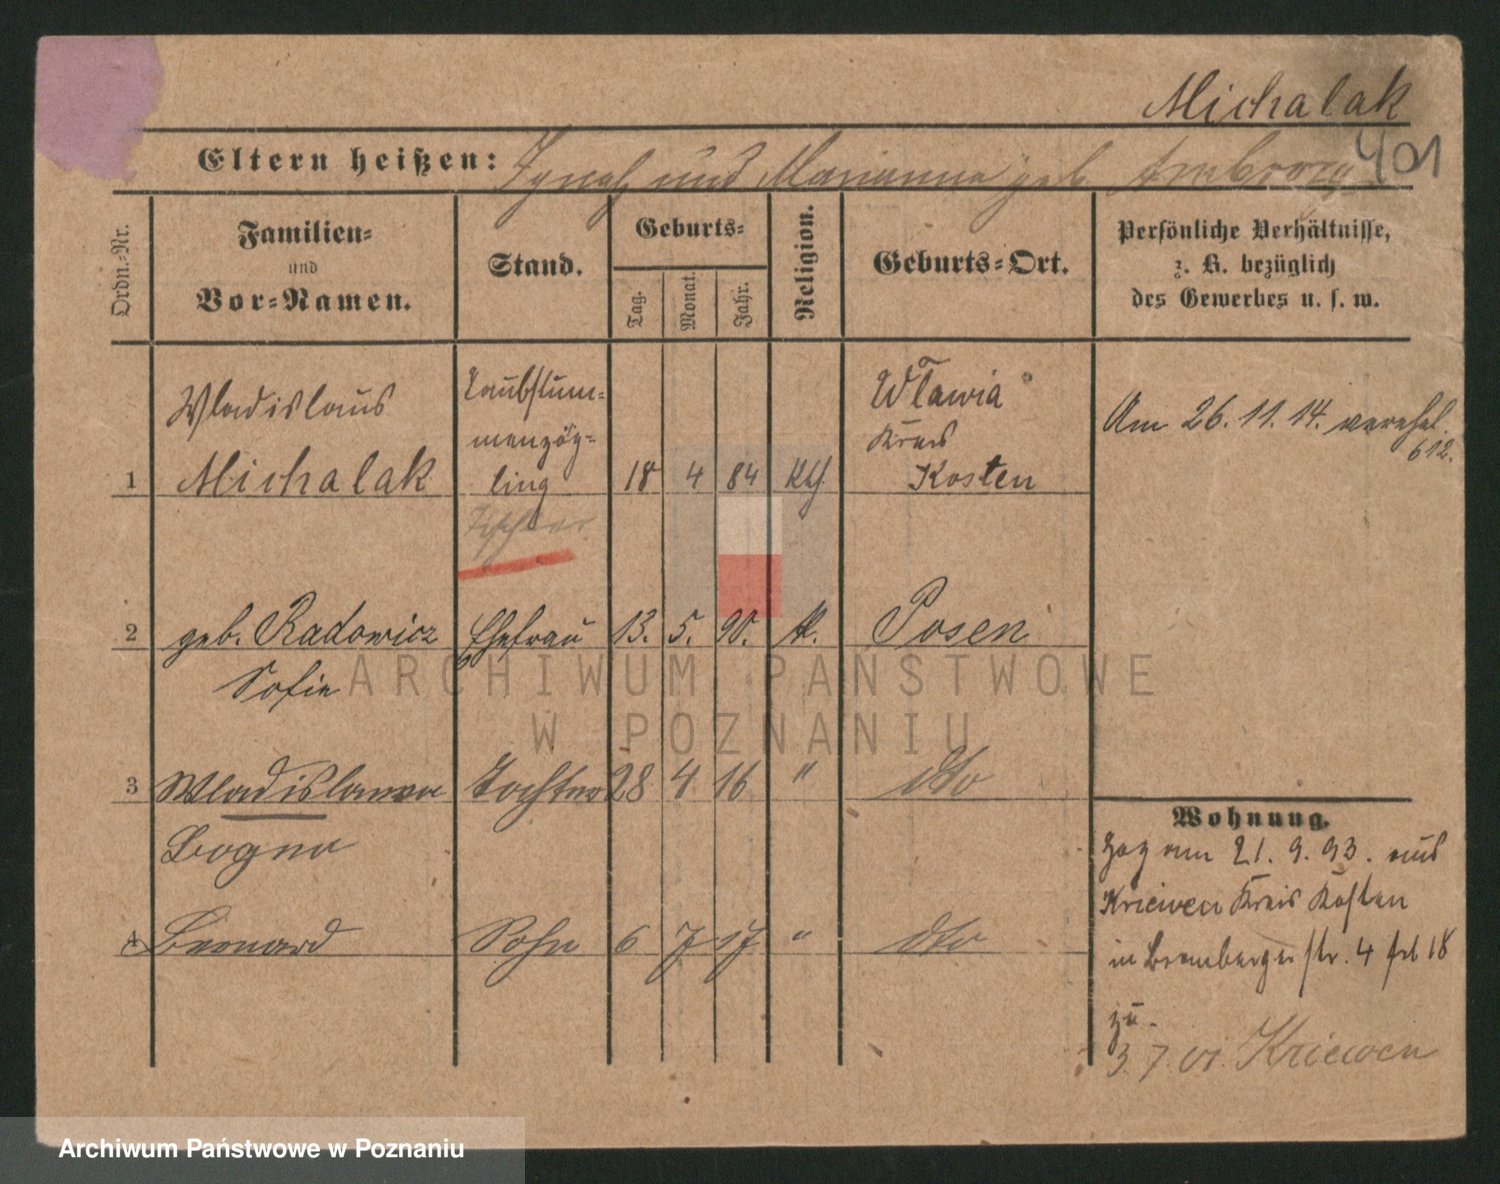 Michalak
401
Eltern heißen: Ignatz und Marianna geb.
Ordn.-Nr.
Familien-
und
Vor-Namen.
Stand.
Geburts-
Tag.
Monat.
Jahr.
Religion.
Geburts-Ort.
Persönliche Verhältnisse,
z. B. bezüglich
des Gewerbes u. s. w.
Wladislaus
Michalak
Taubstum-
menzög-
ling
Tischler
1
18 4 84 kth
Wławia
Kreis
Kosten
Am 26. 11. 14. verehel.
612.
2 geb. Radowicz Ehefrau 13. 5. 90. k. Posen
Sofie
ARCHIWUM PAŃSTWOWE
W POZNANIU
3 Wladislawa Tochter 28 4 16 " dto
Bogna
4 Leonard Sohn 6 7 17 " dto
Wohnung.
Zog am 21. 9. 93. aus
Kriewen Kreis Kosten
in Bromberger str. 4 18
zu.
3. 7. 01. Kriewen
Archiwum Państwowe w Poznaniu